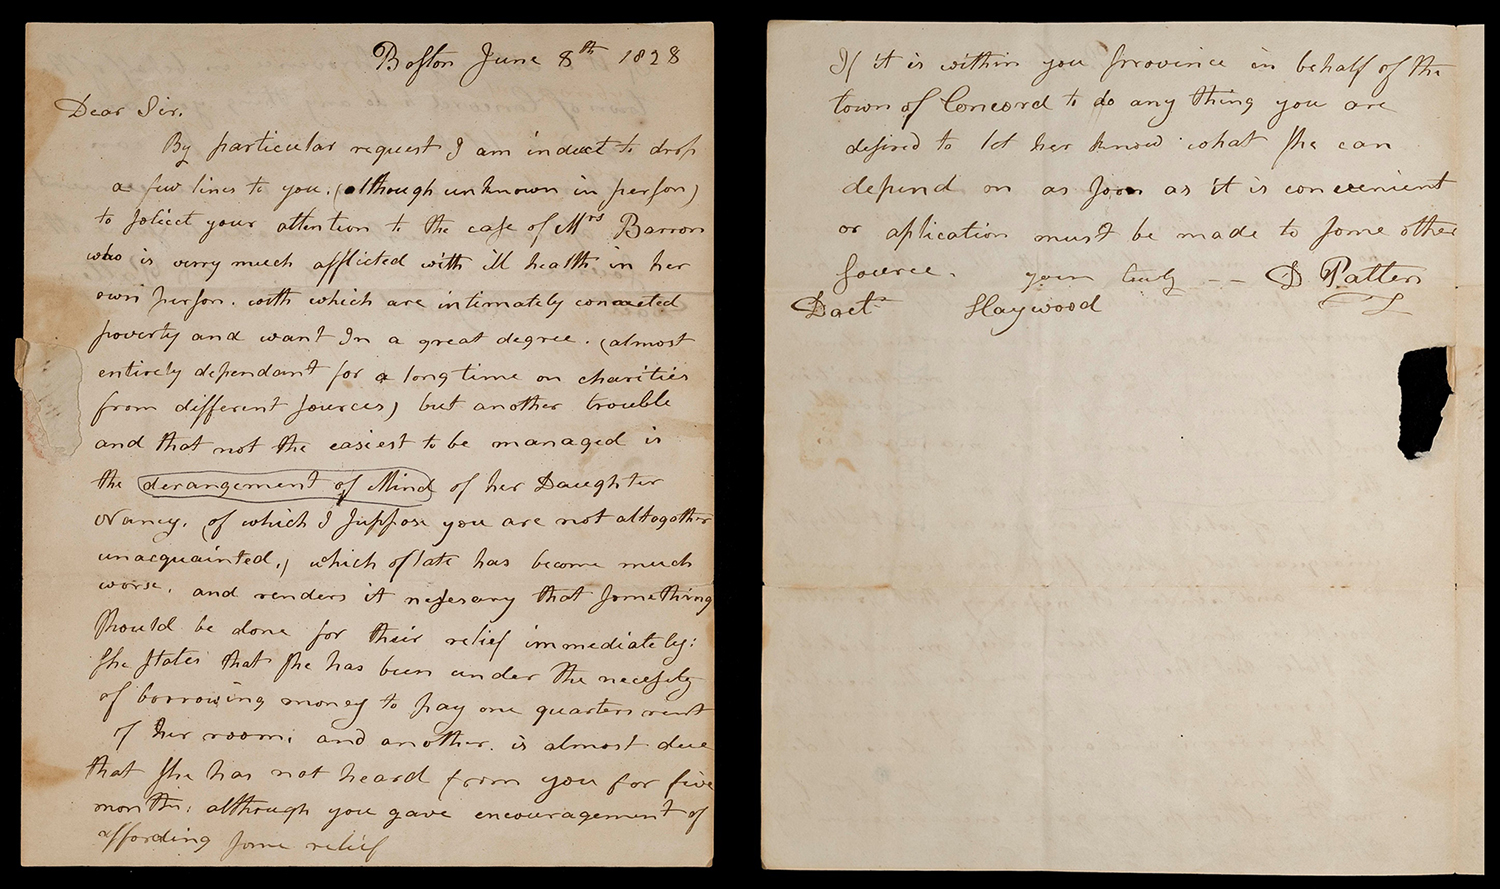 Boston June 8th 1828
Dear Sir.
By particular request I am induct to drop
a few lines to you. (although unknown in person)
to solicit your attention to the case of Mrs Barron
who is verry much afflicted with ill health in her
own person. with which are intimately connected
poverty and want In a great degree. (almost
entirely dependant for a long time on charities
from different sources) but another trouble
and that not the easiest to be managed is
the derangement of Mind of her Daughter
Nancy. (of which I suppose you are not altogather
unacquainted,) which of late has become much
worse. and renders it nessesary that something
should be done for their relief immediately:
she states that she has been under the necessity
of borrowing money to pay one quarters rent
of her room; and another. is almost due
that she has not heard from you for five
months; although you gave encouragement of
affording some relief
If it is within you Provience in behalf of the
town of Concord to do any thing you are
desired to let her know what she can
depend on as soon as it is convenient
or aplication must be made to some other
source. your truly -- D Patten
Doct Haywood